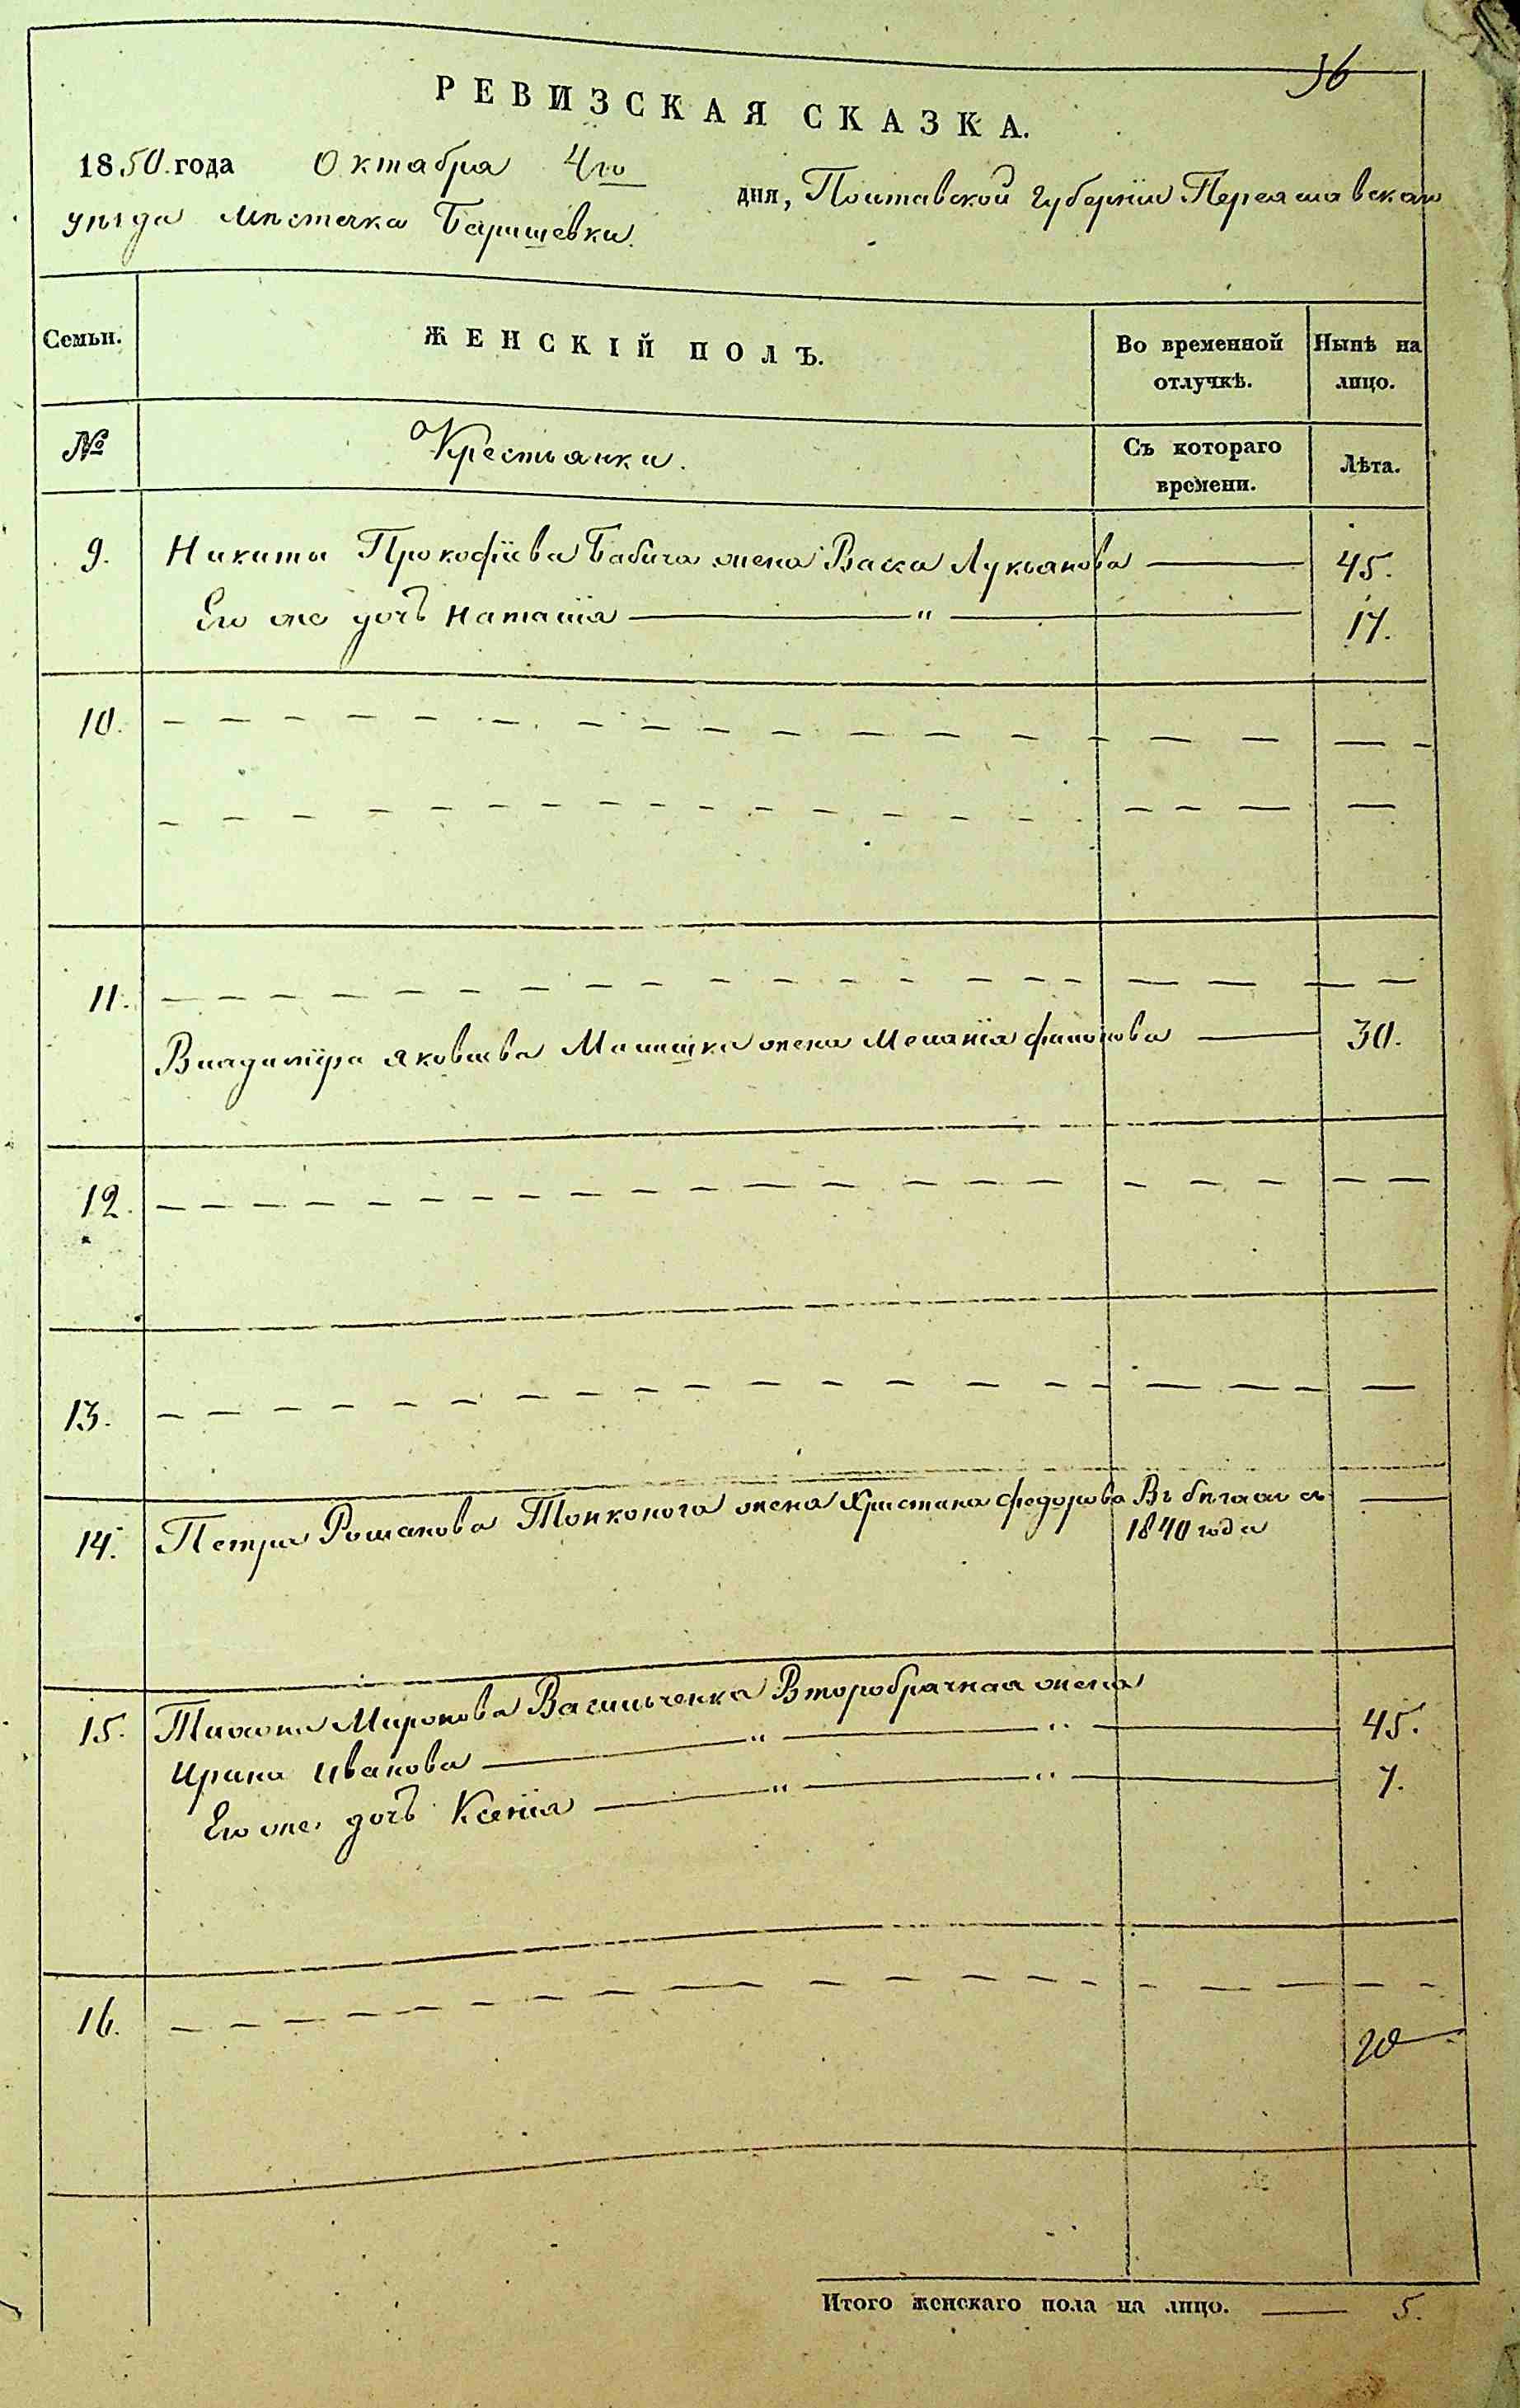 36
РЕВИЗСКАЯ СКАЗКА.
1850. года Октября 4го дня, Полтавской Губерніи Переяславскаго
уѣзда мѣстечка Барышевки.
Семьи. ЖЕНСКІЙ ПОЛЪ. Во временной отлучкѣ. Нынѣ на лицо.
№ Крестьянки. Съ котораго времени. Лѣта.
9. Никиты Прокофіева Бабича жена Васса Лукьянова — 45.
Его же дочь Наталія — " — 17.
10.
11.
Владиміра Яковлева жена Меланія Филипова — 30.
12.
13.
14. Петра Романова Тонконога жена Христина Федорова Въ бѣгахъ съ —
1840 года
15. Миронова Васильченка Второбрачная жена
Ирина Иванова — " — " — 45.
Его же дочь Ксенія — " — " — 7.
16.
20
Итого женскаго пола на лицо. — 5.